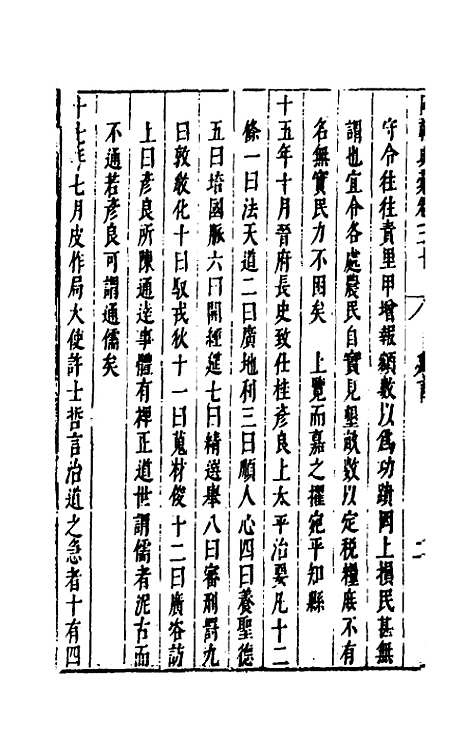 守令徃徃責里甲增報額數以爲功蹟罔上損民甚無
謂也宜令各處農民自實見墾畝數以定税糧庶不有
名無實民力不困矣　上覽而嘉之擢宛平知縣
十五年十月晉府長史致仕桂彥良上太平治要凡十二
條一曰法天道二曰廣地利三曰順人心四曰養聖德
五曰培國脈六曰開經筵七曰精選舉八曰審刑罰九
曰敦敎化十曰馭戎狄十一曰蒐材俊十二曰廣咨訪
上曰彥良所陳通達事體有裨正道世謂儒者泥古而
不通若彥良可謂通儒矣
十七年七月皮作局大使許士哲言治道之急者十有四